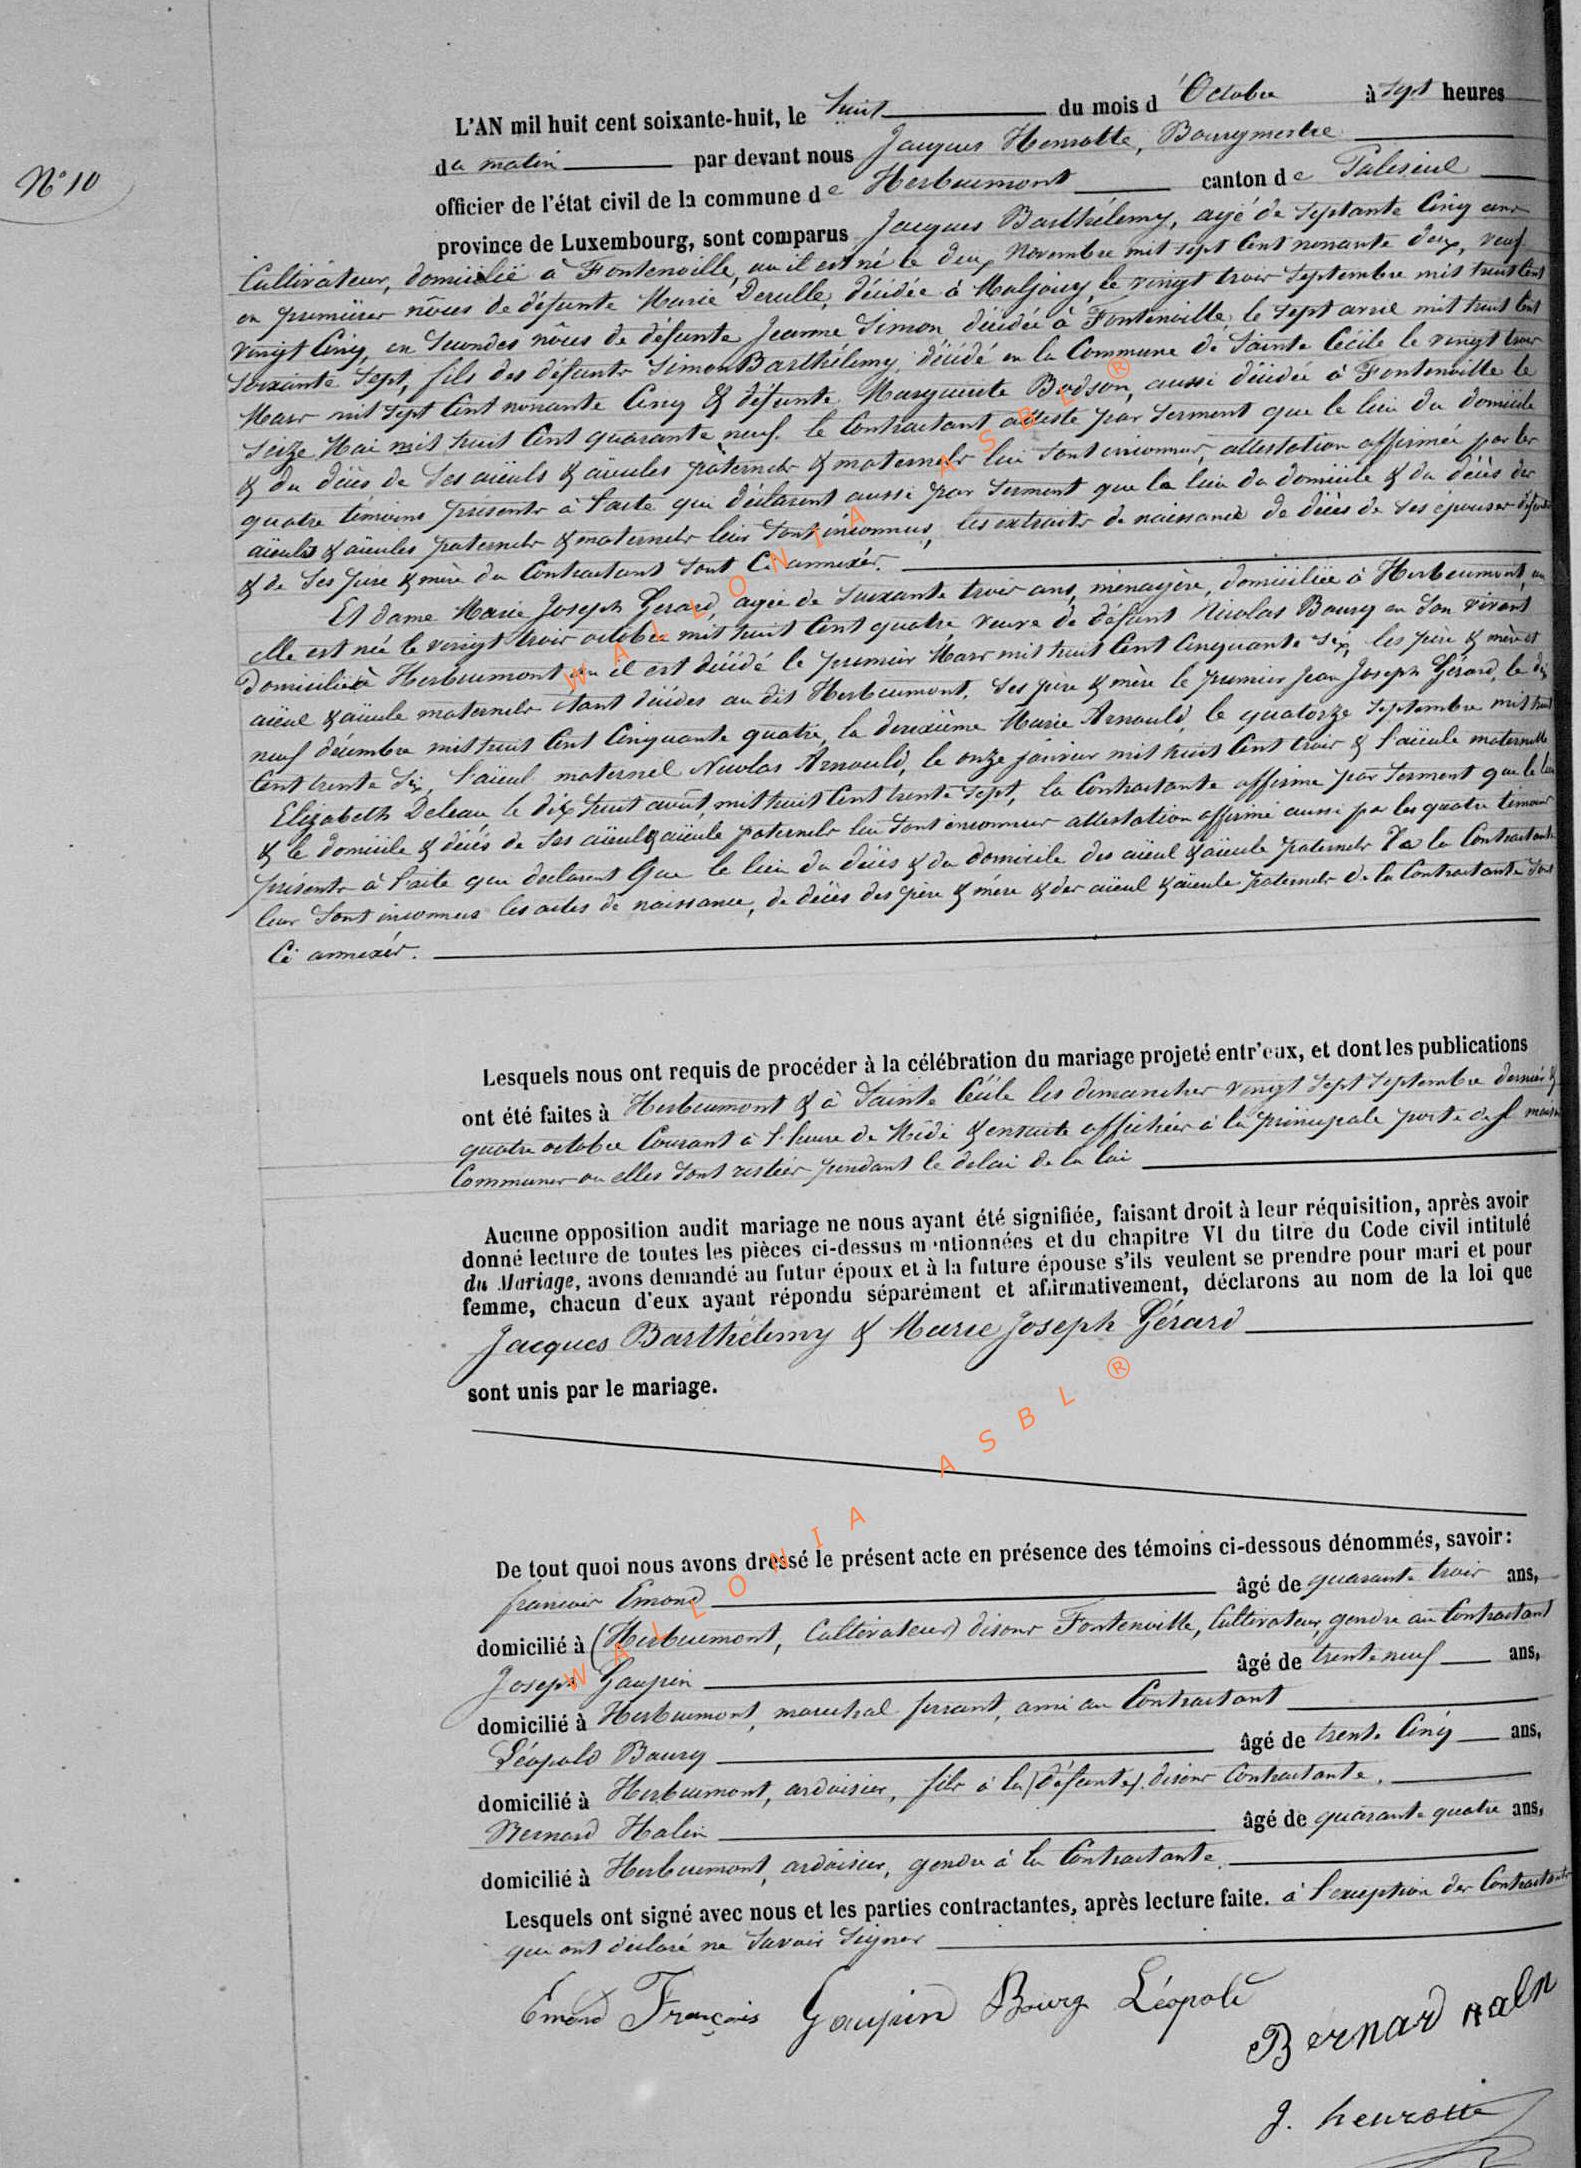 N° 10
L'AN mil huit cent soixante-huit, le huit du mois d'Octobre à sept heures
du matin par devant nous Jacques Henrotte, Bourgmestre
officier de l'état civil de la commune de Herbeumont canton de Paliseul
province de Luxembourg, sont comparus Jacques Barthélemy, agé de septante Cinq ans
Cultivateur, domicilié à Fontenoille, ou il est né le deux Novembre mil sept Cent nonante deux, veuf
en premières nôces de défunte Marie Derulle, décédée à Matjoiry, le vingt trois septembre mil huit Cent
vingt Cinq, en secondes nôces de défunte Jeanne Simon décédée à Fontenoille, le sept avril mil huit Cent
soixante sept, fils des défunts Simon Barthélemy, décédé en la Commune de Sainte Cécile le vingt trois
Mars mil sept Cent nonante Cinq & défunte Marguerite Bodson, aussi décédée à Fontenoille le
seize Mai mil huit Cent quarante neuf. le Contractant atteste par serment que le lieu du domicile
& du décès de ses aïeuls & aïeules paternels & maternels lui sont inconnus, attestation affirmée par les
quatre témoins présents à l'acte qui déclarent aussi par serment que le lieu du domicile & du décès des
aïeuls & aïeules paternels & maternels leur sont inconnus, les extraits de naissance de décès de ses épouses défuntes
& de ses père & mère du Contractant sont Ci annexés.
Et dame Marie Joseph Gerard, agée de soixante trois ans, ménagère, domiciliée à Herbeumont, ou
elle est née le vingt trois octobre mil huit Cent quatre veuve de défunt Nicolas Bourg en son vivant
domicilié à Herbeumont ou il est décédé le premier Mars mil huit Cent Cinquante six, les père & mère et
aïeul & aïeule maternels étant décédés au dit Herbeumont, ses père & mère le premier Jean Joseph Gérard, le dix
neuf décembre mil huit Cent Cinquante quatre, la deuxième Marie Arnould, le quatorze septembre mil huit
Cent trente six, l'aïeul maternel Nicolas Arnould, le onze janvier mil huit Cent trois & l'aïeule maternelle
Elizabeth Deleau le dix huit août mil huit Cent trente sept, la Contractante affirme par serment que le lieu
& le domicile & décès de ses aïeul & aïeule paternels lui sont inconnus attestation affirmé aussi par les quatre témoins
présents à l'acte qui declarent que le lieu du décès & du domicile des aïeul & aïeule paternels de la Contractante
leur sont inconnus les actes de naissance, de décès des père & mère & des aïeul & aïeule paternels de la Contractante sont
Ci annexés.
Lesquels nous ont requis de procéder à la célébration du mariage projeté entr'eux, et dont les publications
ont été faites à Herbeumont & à Sainte Cécile les dimanches vingt sept septembre dernier &
quatre octobre Courant à l'heure de Midi & ensuite affichées à la principale porte des maisons
Communes ou elles sont restées pendant le delai de la loi
Aucune opposition audit mariage ne nous ayant été signifiée, faisant droit à leur réquisition, après avoir
donné lecture de toutes les pièces ci-dessus mentionnées et du chapitre VI du titre du Code civil intitulé
du Mariage, avons demandé au futur époux et à la future épouse s'ils veulent se prendre pour mari et pour
femme, chacun d'eux ayant répondu séparément et affirmativement, déclarons au nom de la loi que
Jacques Barthélemy & Marie Joseph Gérard
sont unis par le mariage.
De tout quoi nous avons dressé le présent acte en présence des témoins ci-dessous dénommés, savoir:
francois Emond âgé de quarante trois ans,
domicilié à (Herbeumont, Cultivateur) disons Fontenoille, Cultivateur, gendre au Contractant
Joseph Goupin âgé de trente neuf ans,
domicilié à Herbeumont, marechal ferrant, ami au Contractant
Léopold Bourg âgé de trente Cinq ans,
domicilié à Herbeumont, ardoisier, fils à la (défunte) disons Contractante.
Bernard Halin âgé de quarante quatre ans,
domicilié à Herbeumont, ardoisier, gendre à la Contractante.
Lesquels ont signé avec nous et les parties contractantes, après lecture faite. à l'exception des Contractants
qui ont déclaré ne savoir signer
Emond François Goupin Bourg Léopold
Bernard Haln
J. henrotte
WALLONIA ASBL ®
WALLONIA ASBL ®